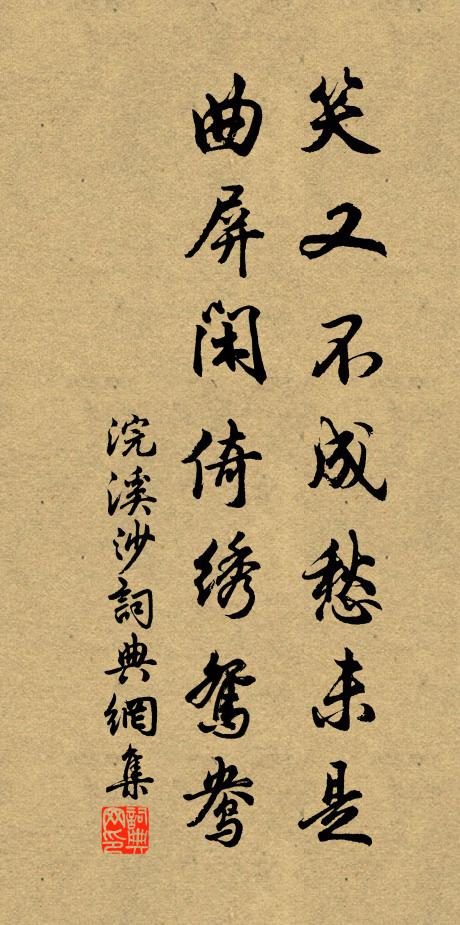 笑又不成愁未是
曲屏闲倚绣鸳鸯
浣溪沙詞典網集
詞典网印